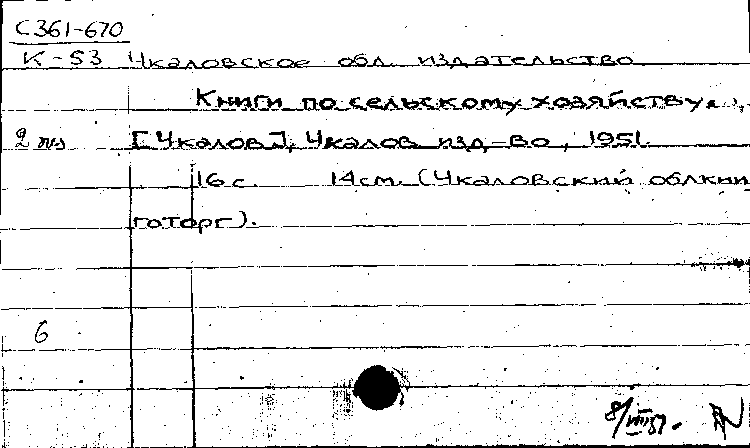 С361-670
К-53 Чкаловское обл. издательство
Книги по сельскому хозяйству.
2 экз [Чкалов], Чкалов изд-во, 1951.
16 с. 14 см. (Чкаловский облкни
готорг).
6
8/VIII 51.